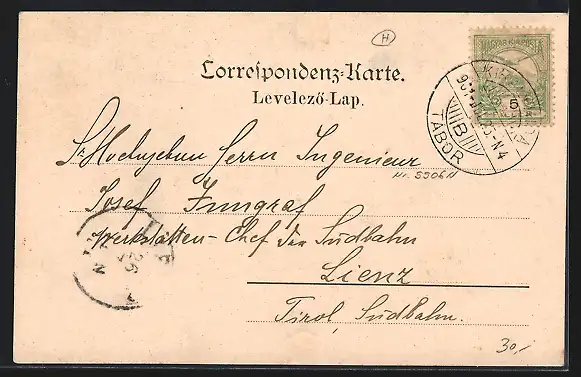 H
Correspondenz-Karte.
Levelező-Lap.
MAGYAR KIR. POSTA
5
TÁBOR
B
Sr Hochgeboren Herrn Ingenieur
Nr. 5906 N
Josef Inngraf
Werkstätten-Chef der Südbahn
26
Lienz
Tirol, Südbahn.
30,-